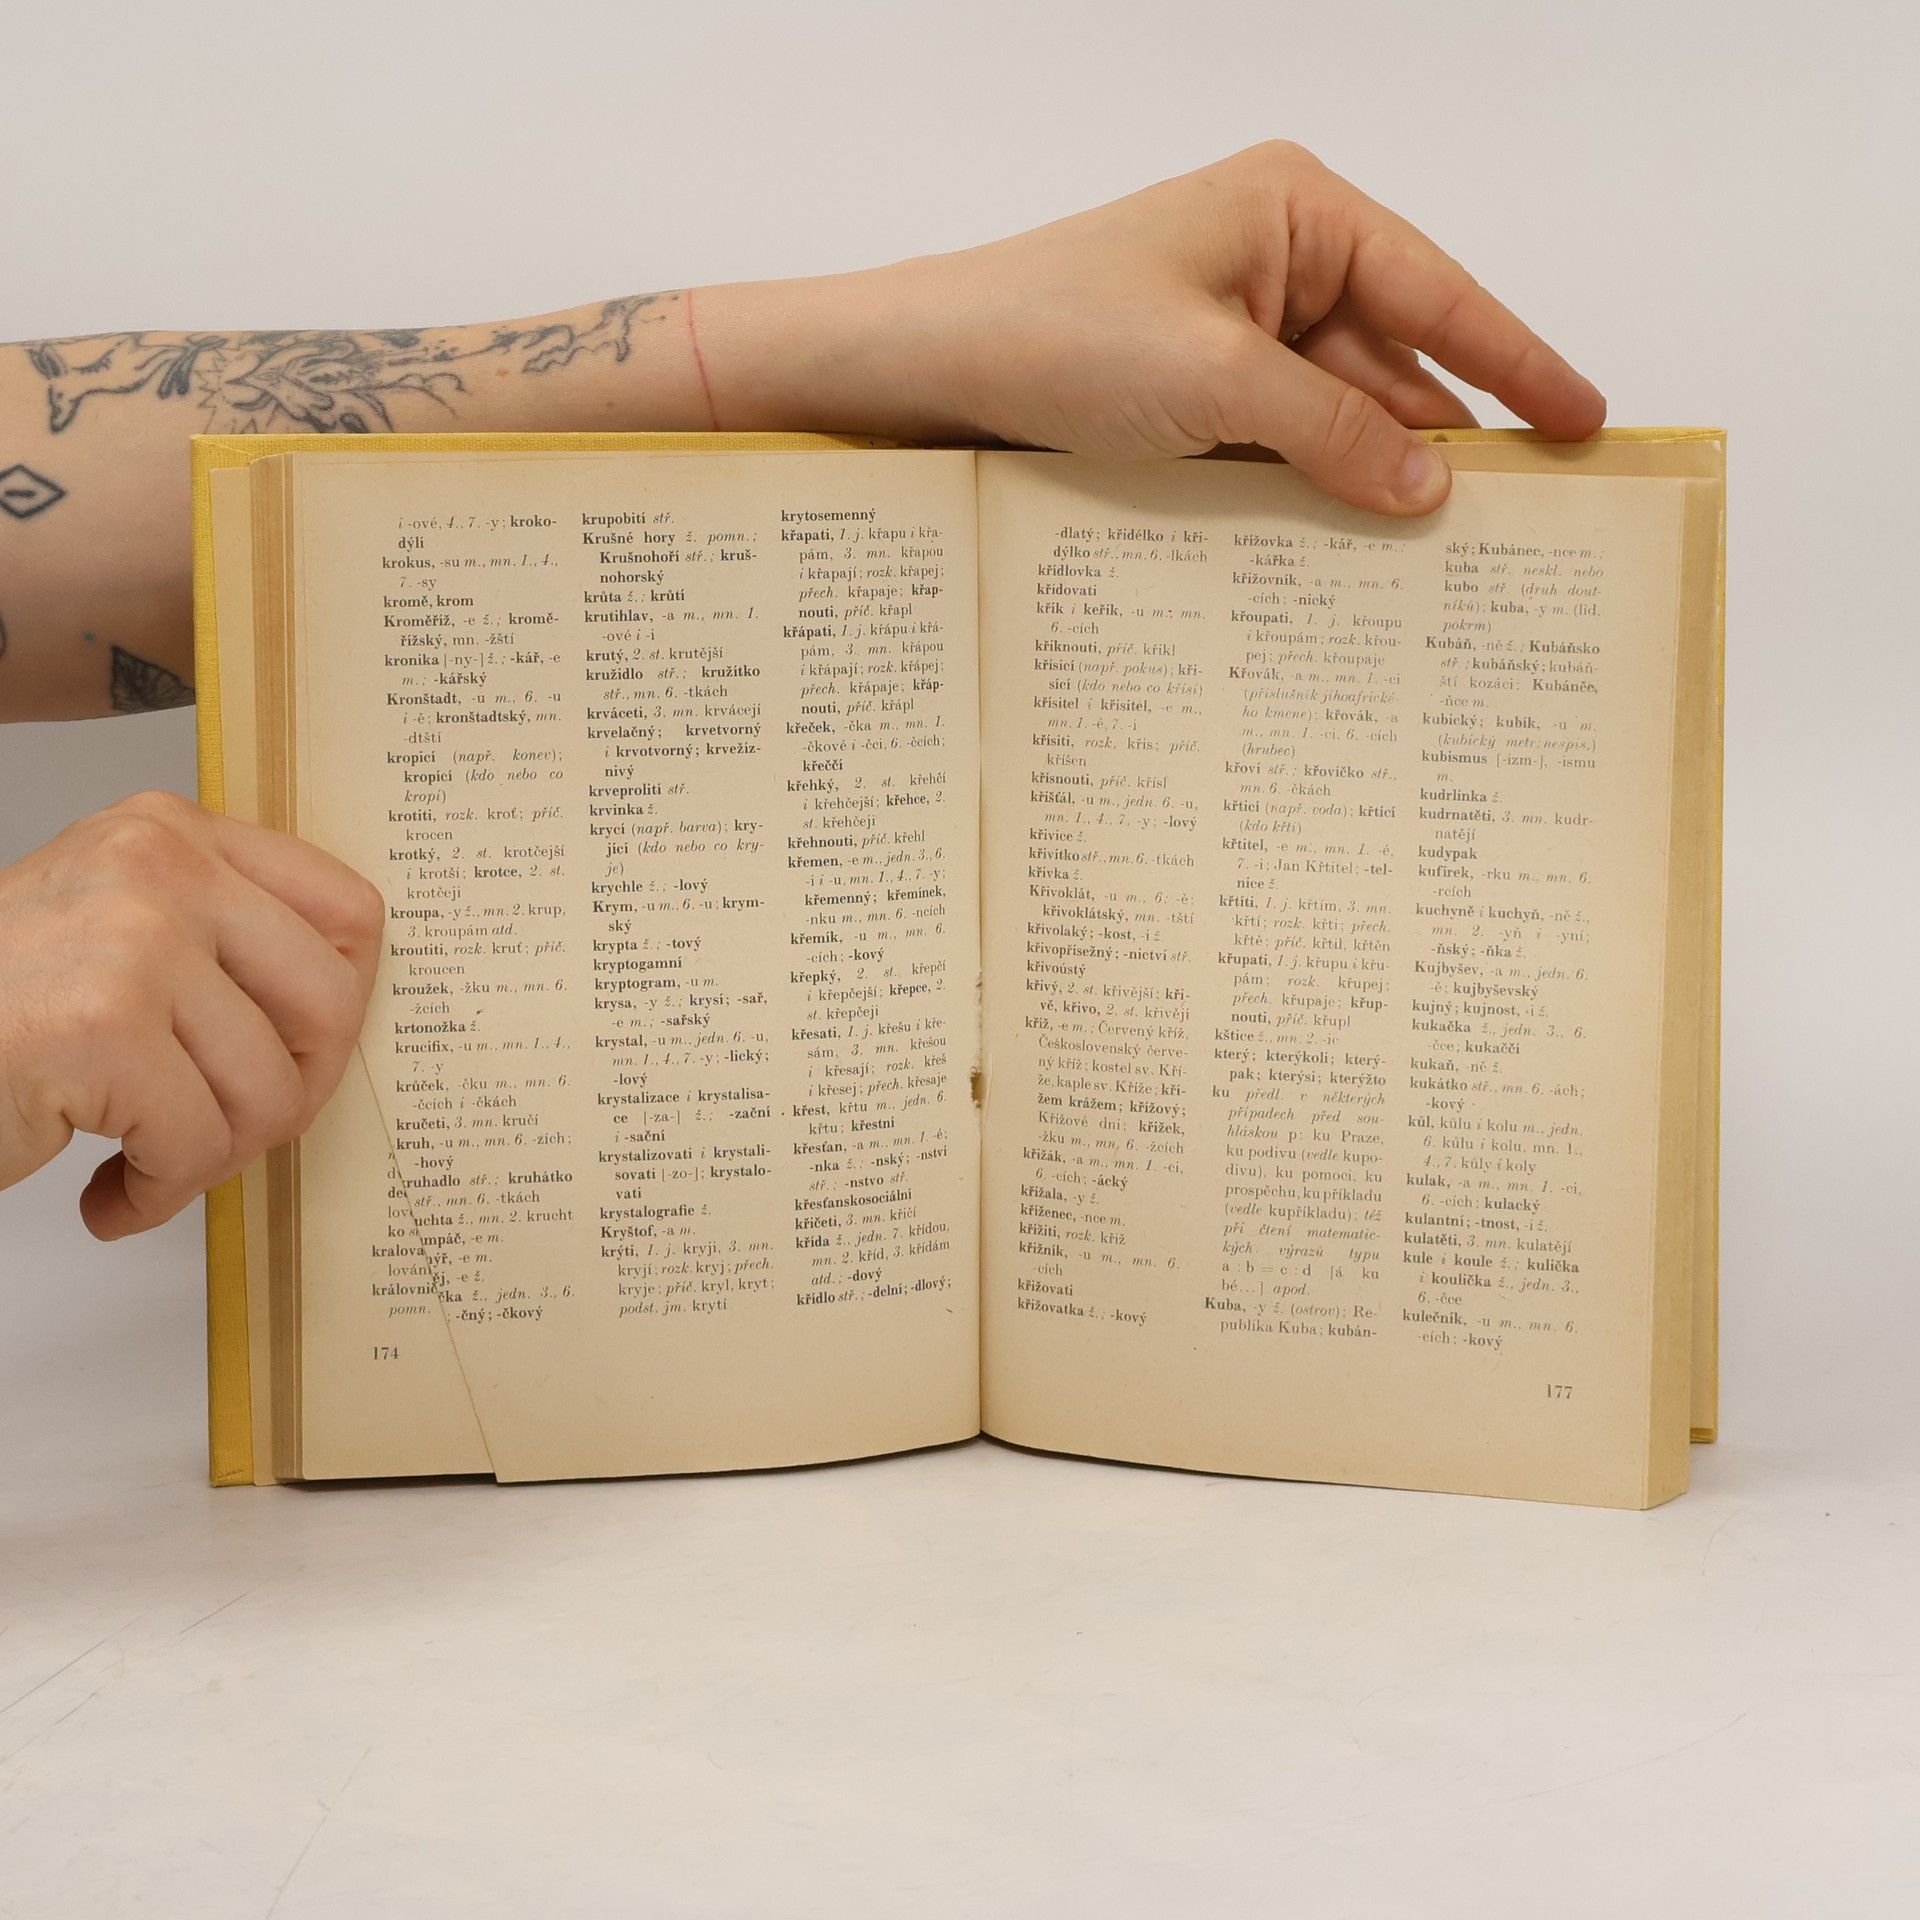 i -ové, 4., 7. -y; kroko-
dýli
krokus, -su m., mn. 1., 4.,
7. -sy
kromě, krom
Kroměříž, -e ž.; kromě-
řížský, mn. -žští
kronika [-ny-] ž.; -kář, -e
m.; -kářský
Kronštadt, -u m., 6. -u
i -ě; kronštadtský, mn.
-dtští
kropicí (např. konev);
kropící (kdo nebo co
kropí)
krotiti, rozk. kroť; příč.
krocen
krotký, 2. st. krotčejší
i krotší; krotce, 2. st.
krotčeji
kroupa, -y ž., mn. 2. krup,
3. kroupám atd.
kroutiti, rozk. kruť; příč.
kroucen
kroužek, -žku m., mn. 6.
-žcích
krtonožka ž.
krucifix, -u m., mn. 1., 4.,
7. -y
krůček, -čku m., mn. 6.
-čcích i -čkách
kručeti, 3. mn. kručí
kruh, -u m., mn. 6. -zích;
-hový
ruhadlo stř.; kruhátko
stř., mn. 6. -tkách
uchta ž., mn. 2. krucht
mpáč, -e m.
kralova
nýř, -e m.
lován
ěj, -e ž.
královnič
čka ž., jedn. 3., 6.
pomn.
; -čný; -čkový
174
krupobití stř.
Krušné hory ž. pomn.;
Krušnohoří stř.; kruš-
nohorský
krůta ž.; krůtí
krutihlav, -a m., mn. 1.
-ové i -i
krutý, 2. st. krutější
kružidlo stř.; kružítko
stř., mn. 6. -tkách
krváceti, 3. mn. krvácejí
krvelačný; krvetvorný
i krvotvorný; krvežíz-
nivý
krveprolití stř.
krvinka ž.
krycí (např. barva); kry-
jící (kdo nebo co kry-
je)
krychle ž.; -lový
Krym, -u m., 6. -u; krym-
ský
krypta ž.; -tový
kryptogamní
kryptogram, -u m.
krysa, -y ž.; krysí; -sař,
-e m.; -sařský
krystal, -u m., jedn. 6. -u,
mn. 1., 4., 7. -y; -lický;
-lový
krystalizace i krystalisa-
ce [-za-] ž.; -zační
i -sační
krystalizovati i krystali-
sovati [-zo-]; krystalo-
vati
krystalografie ž.
Kryštof, -a m.
krýti, 1. j. kryji, 3. mn.
kryjí; rozk. kryj; přech.
kryje; příč. kryl, kryt;
podst. jm. krytí
krytosemenný
křapati, 1. j. křapu i křa-
pám, 3. mn. křapou
i křapají; rozk. křapej;
přech. křapaje; křap-
nouti, příč. křapl
křápati, 1. j. křápu i křá-
pám, 3. mn. křápou
i křápají; rozk. křápej;
přech. křápaje; křáp-
nouti, příč. křápl
křeček, -čka m., mn. 1.
-čkové i -čci, 6. -čcích;
křeččí
křehký, 2. st. křehčí
i křehčejší; křehce, 2.
st. křehčeji
křehnouti, příč. křehl
křemen, -e m., jedn. 3., 6.
-i i -u, mn. 1., 4., 7. -y;
křemenný; křemínek,
-nku m., mn. 6. -ncích
křemík, -u m., mn. 6.
-cích; -kový
křepký, 2. st. křepčí
i křepčejší; křepce, 2.
st. křepčeji
křesati, 1. j. křešu i kře-
sám, 3. mn. křešou
i křesají; rozk. křeš
i křesej; přech. křesaje
křest, křtu m., jedn. 6.
křtu; křestní
křesťan, -a m., mn. 1. -é;
-nka ž.; -nský; -nství
stř.; -nstvo stř.
křesťanskosociální
křičeti, 3. mn. křičí
křída ž., jedn. 7. křídou,
mn. 2. kříd, 3. křídám
atd.; -dový
křídlo stř.; -delní; -dlový;
-dlatý; křidélko i kří-
dýlko stř., mn. 6. -lkách
křídlovka ž.
křídovati
křik i keřík, -u m.; mn.
6. -cích
křiknouti, příč. křikl
křísicí (např. pokus); kří-
sící (kdo nebo co křísí)
křísitel i křisitel, -e m.,
mn. 1. -é, 7. -i
křísiti, rozk. křis; příč.
kříšen
křísnouti, příč. křísl
křišťál, -u m., jedn. 6. -u,
mn. 1., 4., 7. -y; -lový
křivice ž.
křivítko stř., mn. 6. -tkách
křivka ž.
Křivoklát, -u m., 6. -ě;
křivoklátský, mn. -tští
křivolaký; -kost, -i ž.
křivopřísežný; -nictví stř.
křivoústý
křivý, 2. st. křivější; kři-
vě, křivo, 2. st. křivěji
kříž, -e m.; Červený kříž,
Československý červe-
ný kříž; kostel sv. Kří-
že, kaple sv. Kříže; kří-
žem krážem; křížový;
Křížové dni; křížek,
-žku m., mn. 6. -žcích
křižák, -a m., mn. 1. -ci,
6. -cích; -ácký
křížala, -y ž.
kříženec, -nce m.
křížiti, rozk. křiž
křižník, -u m., mn. 6.
-cích
křižovati
křižovatka ž.; -kový
křížovka ž.; -kář, -e m.;
-kářka ž.
křižovník, -a m., mn. 6.
-cích; -nický
křoupati, 1. j. křoupu
i křoupám; rozk. křou-
pej; přech. křoupaje
Křovák, -a m., mn. 1. -ci
(příslušník jihoafrické-
ho kmene); křovák, -a
m., mn. 1. -ci, 6. -cích
(hrubec)
křoví stř.; křovíčko stř.,
mn. 6. -čkách
křticí (např. voda); křtící
(kdo křtí)
křtitel, -e m., mn. 1. -é,
7. -i; Jan Křtitel; -tel-
nice ž.
křtíti, 1. j. křtím, 3. mn.
křtí; rozk. křti; přech.
křtě; příč. křtil, křtěn
křupati, 1. j. křupu i křu-
pám; rozk. křupej;
přech. křupaje; křup-
nouti, příč. křupl
kštice ž., mn. 2. -ic
který; kterýkoli; který-
pak; kterýsi; kterýžto
ku předl. v některých
případech před sou-
hláskou p: ku Praze,
ku podivu (vedle kupo-
divu), ku pomoci, ku
prospěchu, ku příkladu
(vedle kupříkladu); též
při čtení matematic-
kých výrazů typu
a : b = c : d [á ku
bé...] apod.
Kuba, -y ž. (ostrov); Re-
publika Kuba; kubán-
ský; Kubánec, -nce m.;
kuba stř. neskl. nebo
kubo stř. (druh dout-
níků); kuba, -y m. (lid.
pokrm)
Kubáň, -ně ž.; Kubáňsko
stř.; kubáňský; kubáň-
ští kozáci; Kubáněc,
-ňce m.
kubický; kubík, -u m.
(kubický metr; nespis.)
kubismus [-izm-], -ismu
m.
kudrlinka ž.
kudrnatěti, 3. mn. kudr-
natějí
kudypak
kufírek, -rku m., mn. 6.
-rcích
kuchyně i kuchyň, -ně ž.,
mn. 2. -yň i -yní;
-ňský; -ňka ž.
Kujbyšev, -a m., jedn. 6.
-ě; kujbyševský
kujný; kujnost, -i ž.
kukačka ž., jedn. 3., 6.
-čce; kukaččí
kukaň, -ně ž.
kukátko stř., mn. 6. -ách;
-kový
kůl, kůlu i kolu m., jedn.
6. kůlu i kolu, mn. 1.,
4., 7. kůly i koly
kulak, -a m., mn. 1. -ci,
6. -cích; kulacký
kulantní; -tnost, -i ž.
kulatěti, 3. mn. kulatějí
kule i koule ž.; kulička
i koulička ž., jedn. 3.,
6. -čce
kulečník, -u m., mn. 6.
-cích; -kový
177